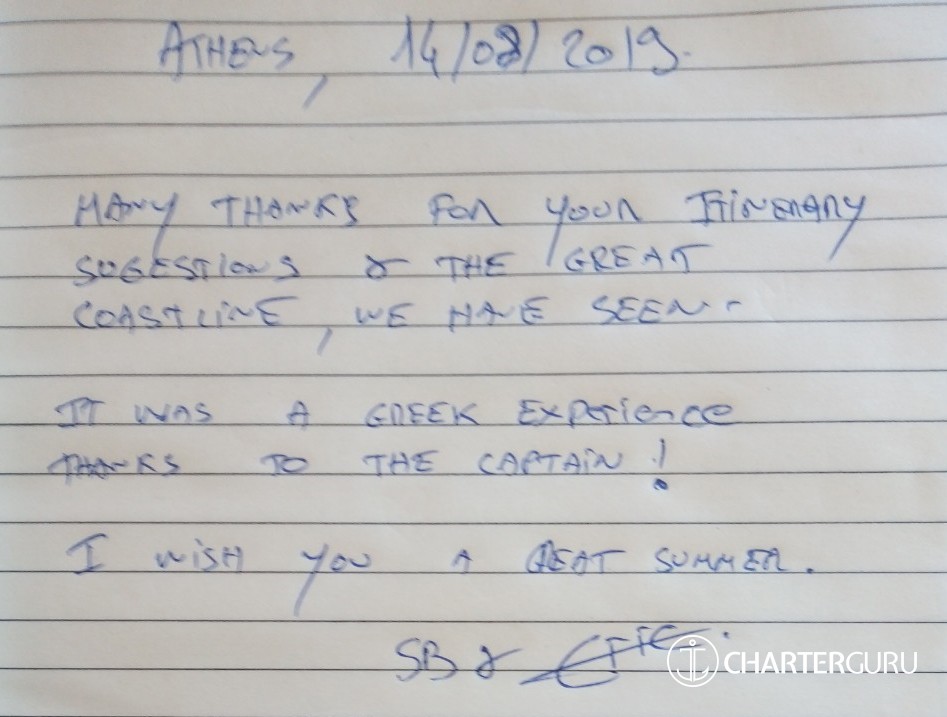 ATHENS, 14/08/2019.
MANY THANKS FOR YOUR ITINERARY
SUGESTIONS & THE GREAT
COASTLINE, WE HAVE SEEN.
IT WAS A GREEK EXPERIENCE
THANKS TO THE CAPTAIN!
I WISH YOU A GREAT SUMMER.
SB &
CHARTERGURU